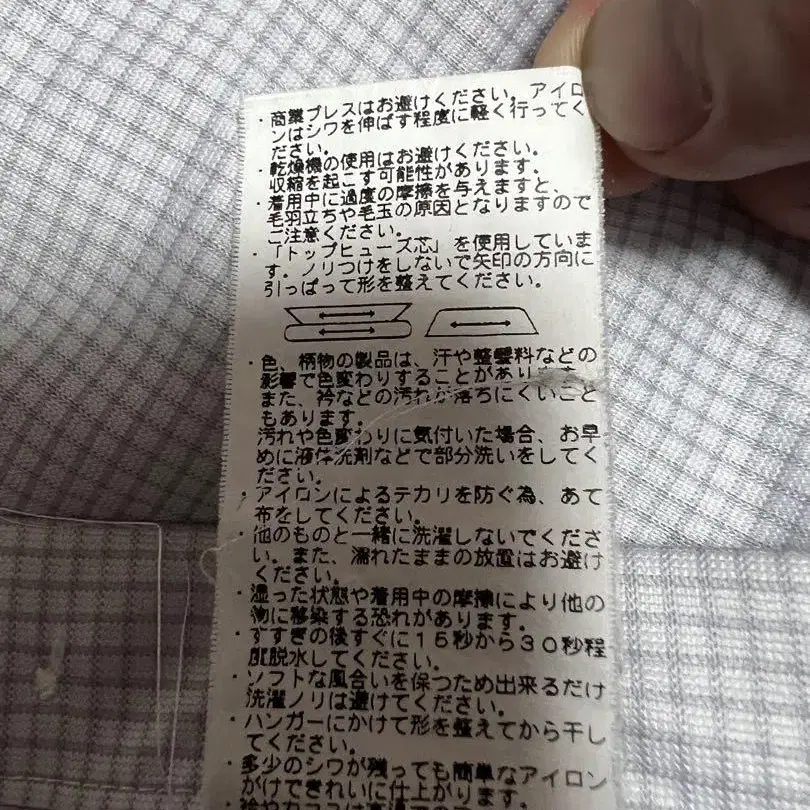 ・商業プレスはお避けください。アイロ
ンはシワを伸ばす程度に軽く行ってく
ださい。
・乾燥機の使用はお避けください。
収縮を起こす可能性があります。
・着用中に過度の摩擦を与えますと、
毛羽立ちや毛玉の原因となりますので
ご注意ください。
・「トップヒューズ芯」を使用していま
す。ノリつけをしないで矢印の方向に
引っぱって形を整えてください。
・色、柄物の製品は、汗や整髪料などの
影響で色変わりすることがあります。
また、衿などの汚れが落ちにくいこと
もあります。
汚れや色変わりに気付いた場合、お早
めに液体洗剤などで部分洗いをしてく
ださい。
・アイロンによるテカリを防ぐ為、あて
布をしてください。
・他のものと一緒に洗濯しないでくださ
い。また、濡れたままの放置はお避け
ください。
・湿った状態や着用中の摩擦により他の
物に移染する恐れがあります。
・すすぎの後すぐに15秒から30秒程
度脱水してください。
・ソフトな風合いを保つため出来るだけ
洗濯ノリは避けてください。
・ハンガーにかけて形を整えてから干し
てください。
・多少のシワが残っても簡単なアイロン
がけできれいに仕上がります。